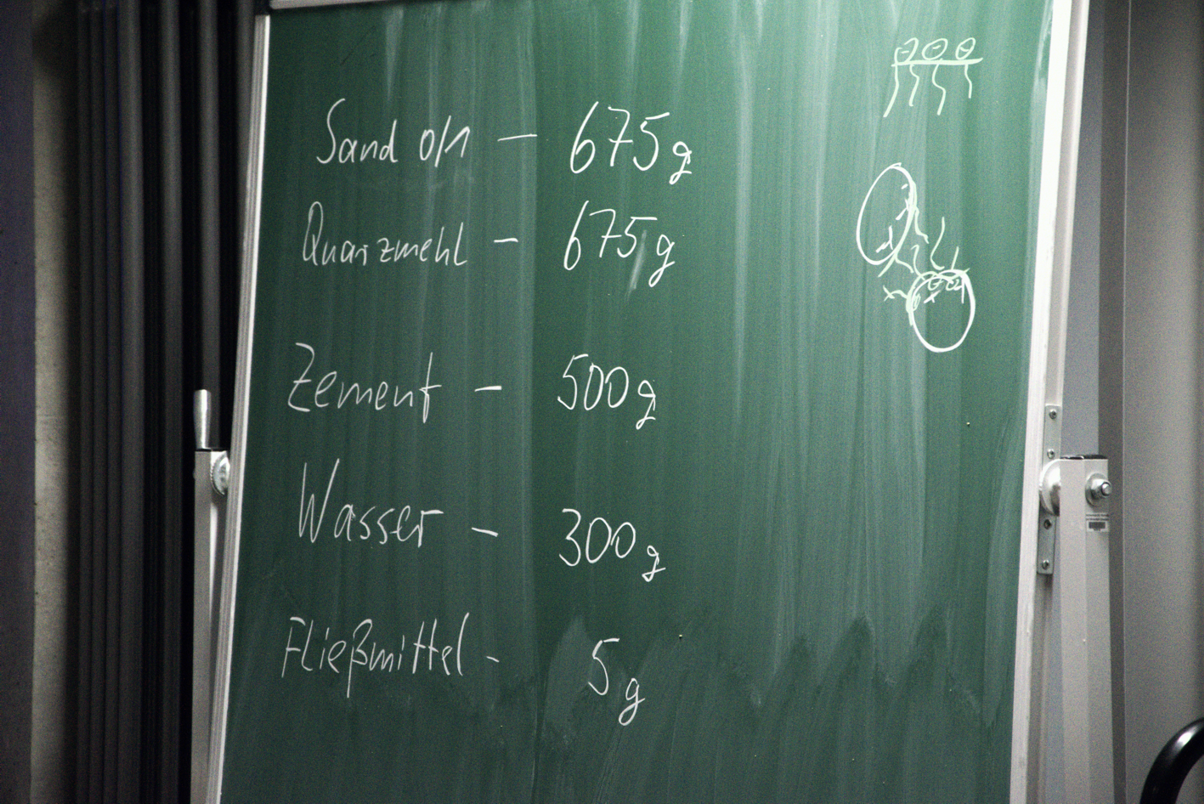 Sand 0/1 – 675g
Quarzmehl – 675g
Zement – 500g
Wasser – 300g
Fließmittel - 5g